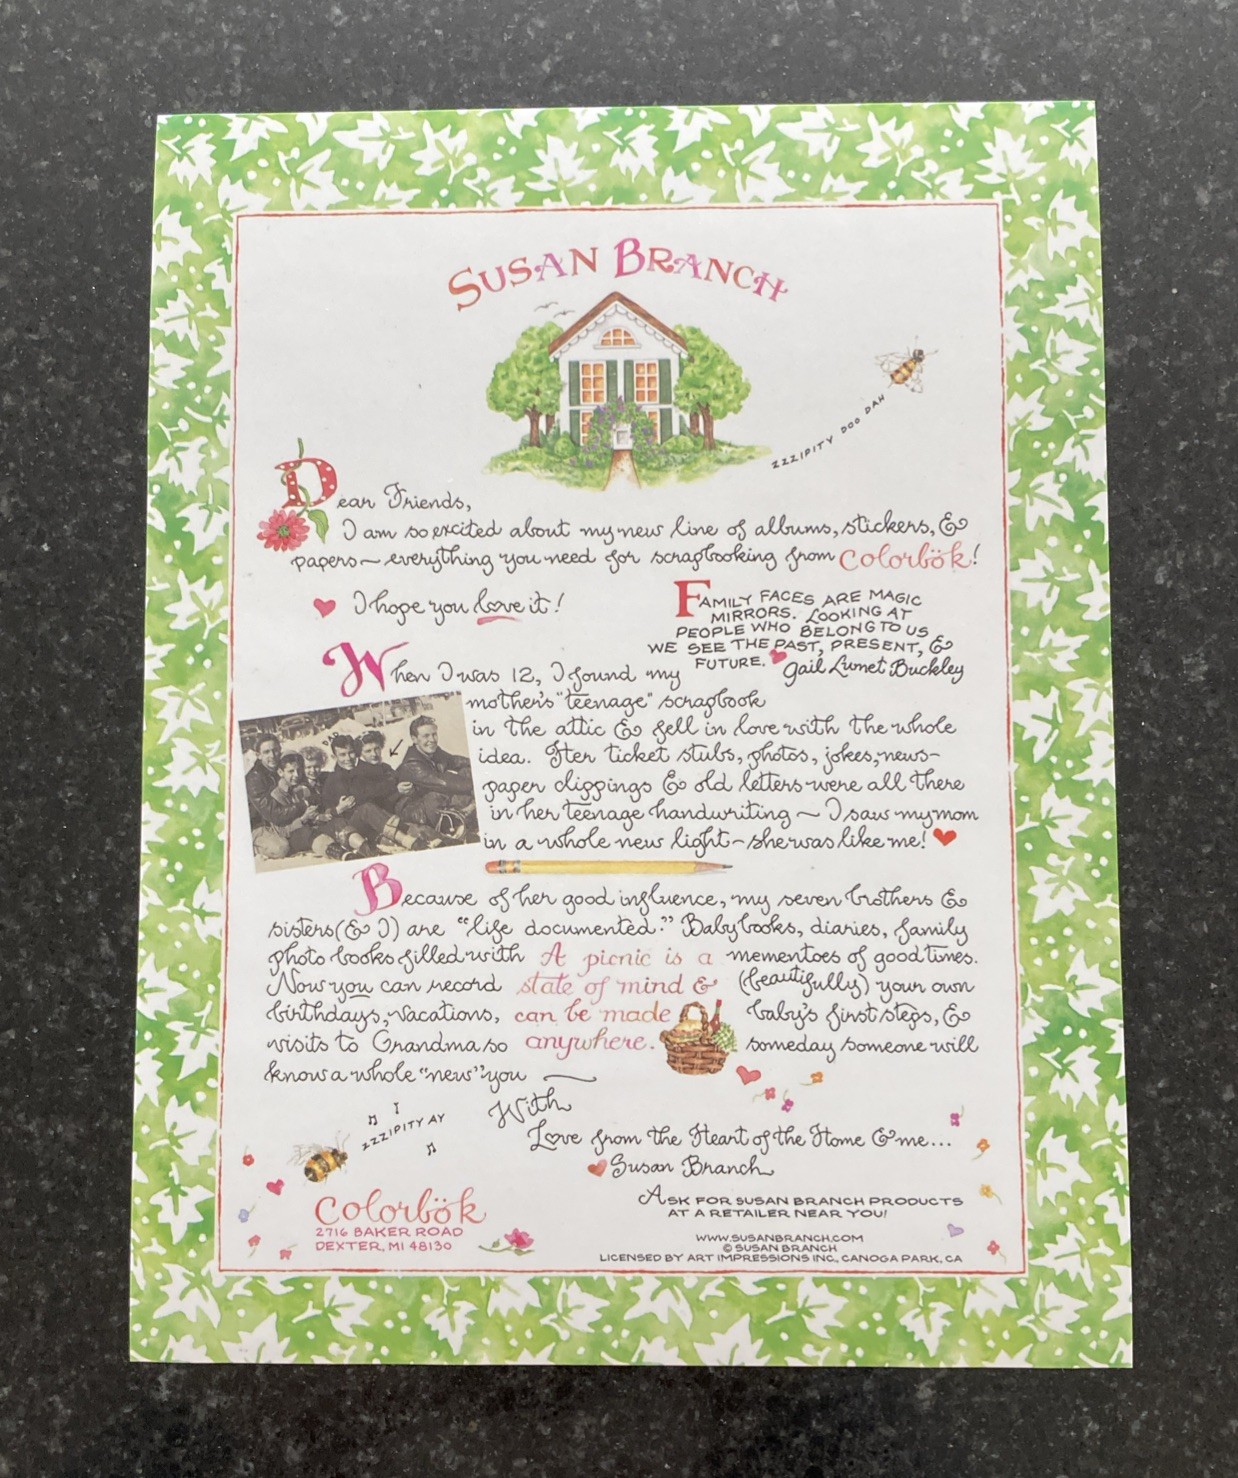 SUSAN BRANCH
ZZZIPITY DOO DAH
Dear Friends,
I am so excited about my new line of albums, stickers, &
papers~everything you need for scrapbooking from Colorbök!
♥ I hope you love it!
FAMILY FACES ARE MAGIC
MIRRORS. LOOKING AT
PEOPLE WHO BELONG TO US
WE SEE THE PAST, PRESENT, &
FUTURE. ♥ Gail Lumet Buckley
When I was 12, I found my
mother's "teenage" scrapbook
in the attic & fell in love with the whole
idea. Her ticket stubs, photos, jokes, news-
paper clippings & old letters were all there
in her teenage handwriting ~ I saw my mom
in a whole new light~she was like me! ♥
Because of her good influence, my seven brothers &
sisters (& I) are "life documented." Baby books, diaries, family
photo books filled with mementoes of good times.
Now you can record (beautifully) your own
birthdays, vacations, baby's first steps, &
visits to Grandma so someday someone will
know a whole "new" you
A picnic is a
state of mind &
can be made
anywhere.
With
Love from the Heart of the Home & me...
♥ Susan Branch
ZZZIPITY AY
Colorbök
2716 BAKER ROAD
DEXTER, MI 48130
ASK FOR SUSAN BRANCH PRODUCTS
AT A RETAILER NEAR YOU!
WWW.SUSANBRANCH.COM
© SUSAN BRANCH
LICENSED BY ART IMPRESSIONS INC., CANOGA PARK, CA